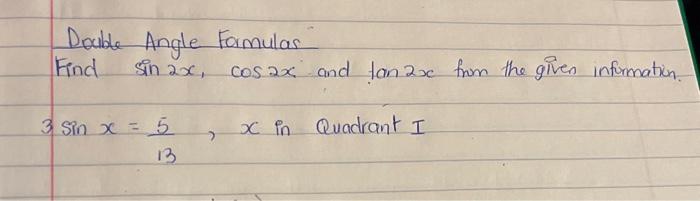 Double Angle Formulas
Find sin 2x, cos 2x and tan 2x from the given information.
3 sin x = 5/13, x in Quadrant I